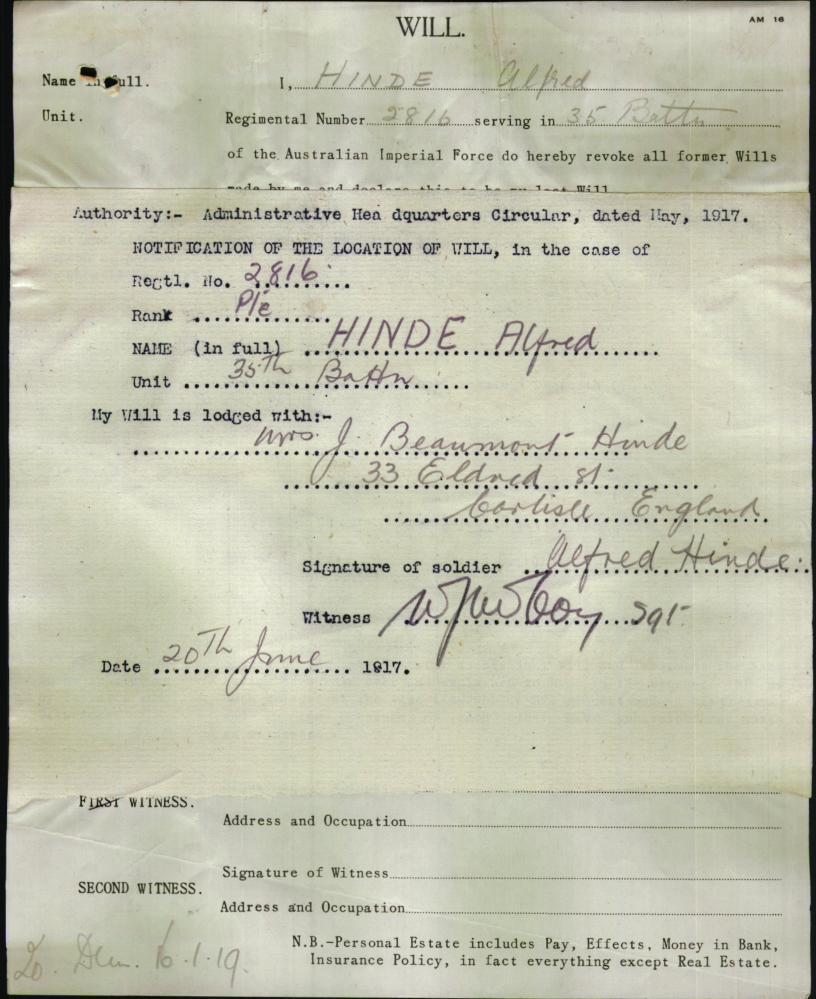 WILL.
AM 16
Name in full. I, HINDE Alfred
Unit. Regimental Number 2816 serving in 35 Battn
of the Australian Imperial Force do hereby revoke all former Wills
made by me and declare this to be my last Will
Authority:- Administrative Hea dquarters Circular, dated May, 1917.
NOTIFICATION OF THE LOCATION OF WILL, in the case of
Regtl. No. 2816
Rank Pte
NAME (in full) HINDE Alfred
Unit 35th Battn
My Will is lodged with:-
Mrs. J. Beaumont Hinde
33 Eldred St
Carlisle England
Signature of soldier Alfred Hinde.
Witness Sgt
Date 20th June 1917.
FIRST WITNESS.
Address and Occupation
Signature of Witness
SECOND WITNESS.
Address and Occupation
N.B.-Personal Estate includes Pay, Effects, Money in Bank,
Insurance Policy, in fact everything except Real Estate.
6.1.19.